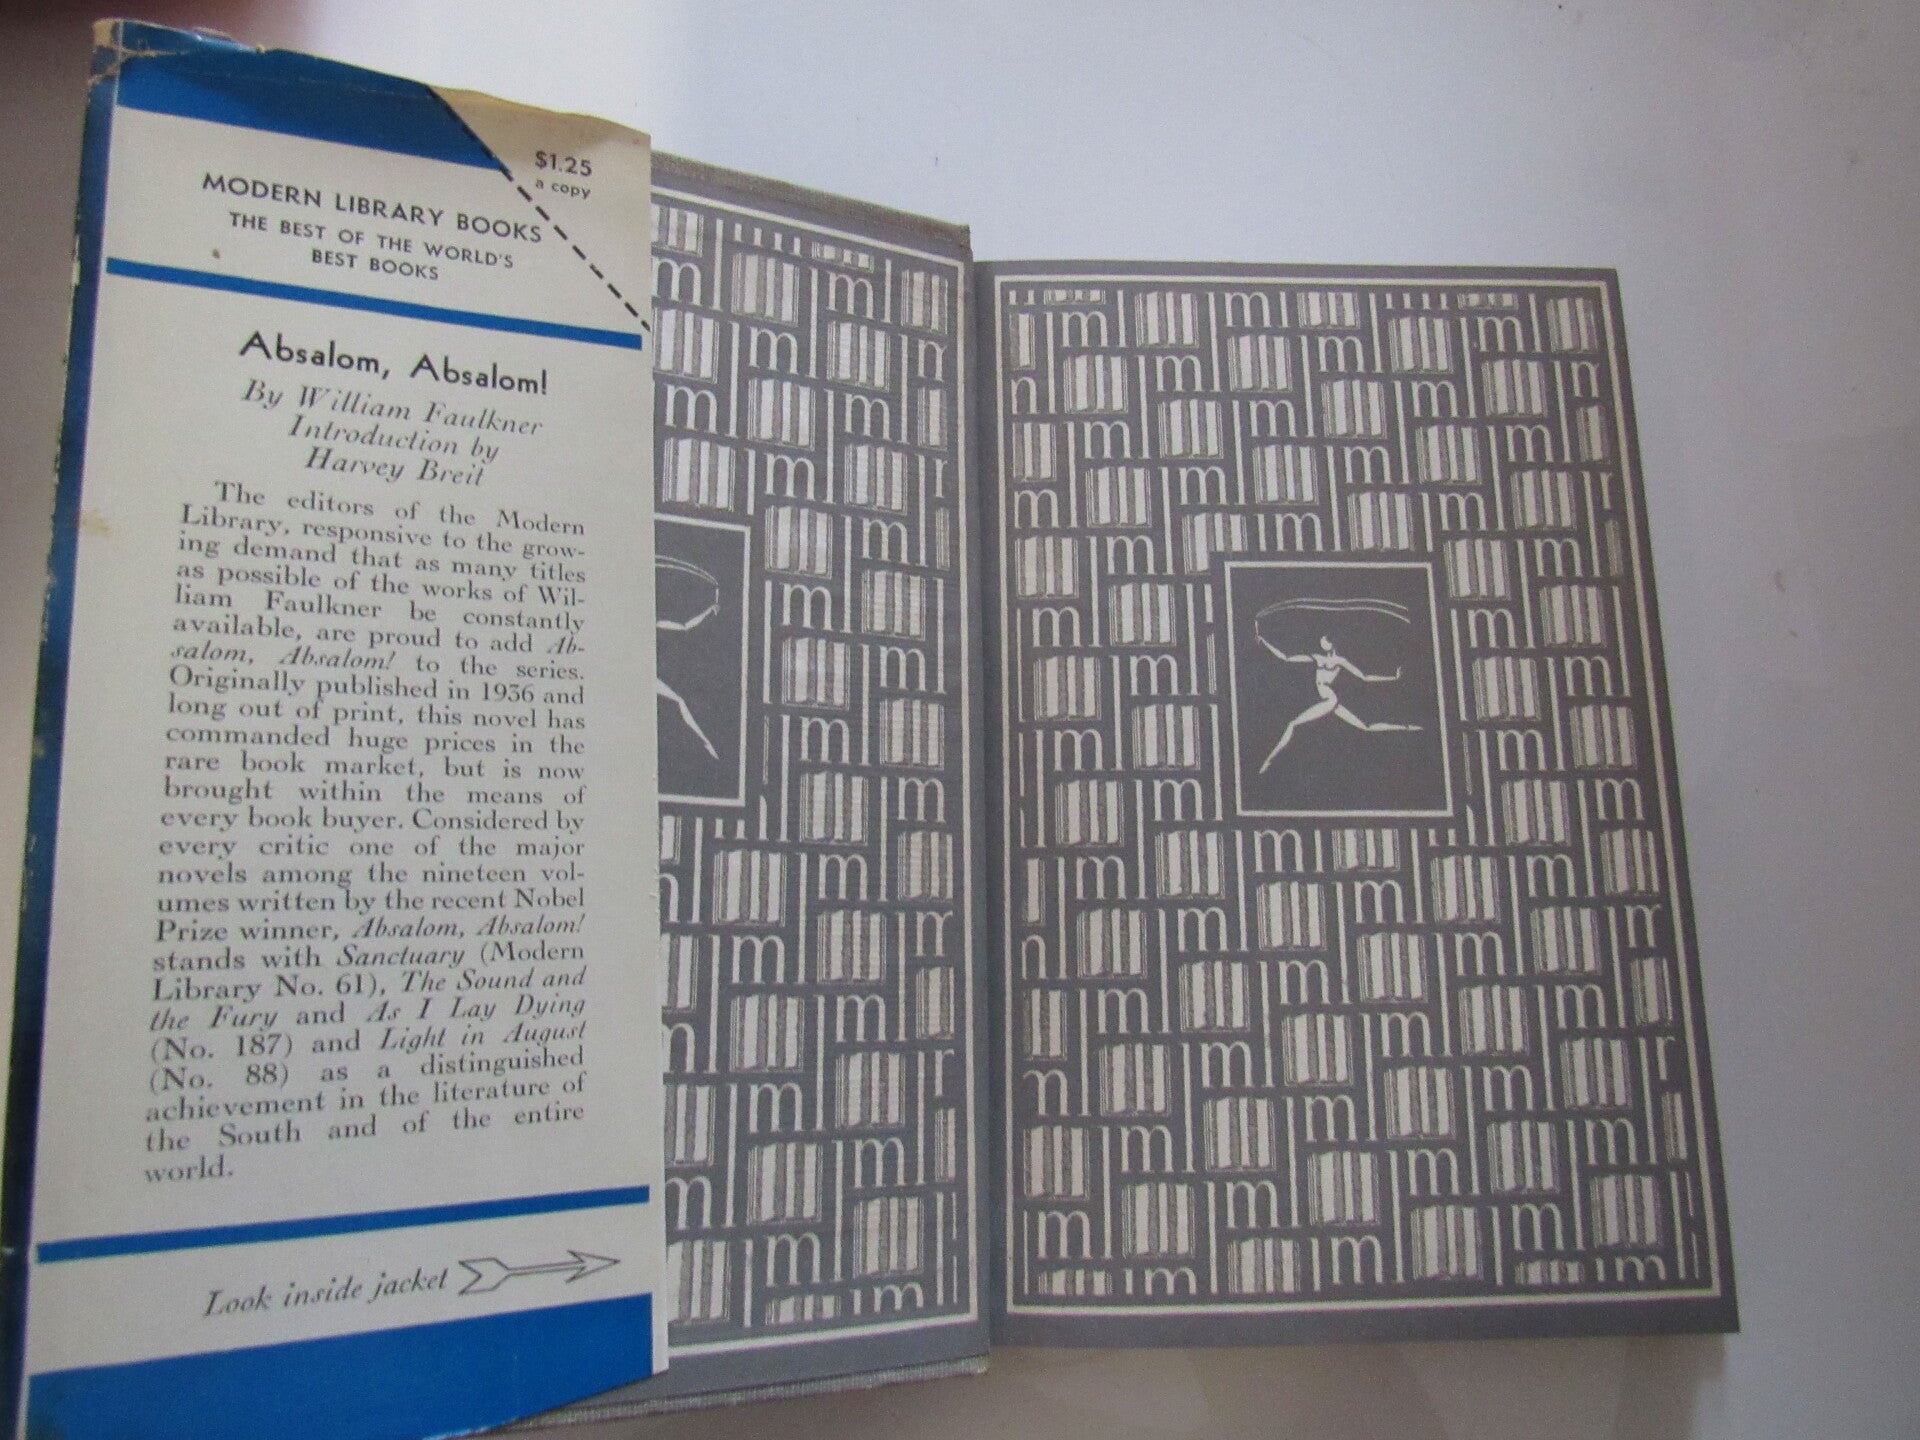 $1.25
a copy
MODERN LIBRARY BOOKS
THE BEST OF THE WORLD'S
BEST BOOKS
Absalom, Absalom!
By William Faulkner
Introduction by
Harvey Breit
The editors of the Modern
Library, responsive to the grow-
ing demand that as many titles
as possible of the works of Wil-
liam Faulkner be constantly
available, are proud to add Ab-
salom, Absalom! to the series.
Originally published in 1936 and
long out of print, this novel has
commanded huge prices in the
rare book market, but is now
brought within the means of
every book buyer. Considered by
every critic one of the major
novels among the nineteen vol-
umes written by the recent Nobel
Prize winner, Absalom, Absalom!
stands with Sanctuary (Modern
Library No. 61), The Sound and
the Fury and As I Lay Dying
(No. 187) and Light in August
(No. 88) as a distinguished
achievement in the literature of
the South and of the entire
world.
Look inside jacket